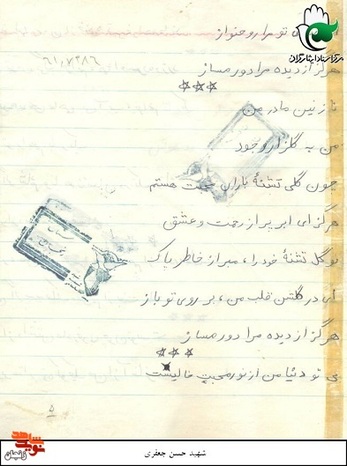 تو مرا روحنواز
هرگز از دیده مرا دور مساز
۶۱,۷۲۸۶
☆☆☆
نازنین مادر من
من به گلزار وجود
چون گلی تشنهٔ باران هستم
هرگز ای ابر پر از رحمت و عشق
تو گل تشنهٔ خود را، مبر از خاطر پاک
ای در گلشن قلب من، بر روی تو باز
هرگز از دیده مرا دور مساز
☆☆☆
بی تو دنیا من از نور محبت خالیست
شهید حسن جعفری
نوید شاهد